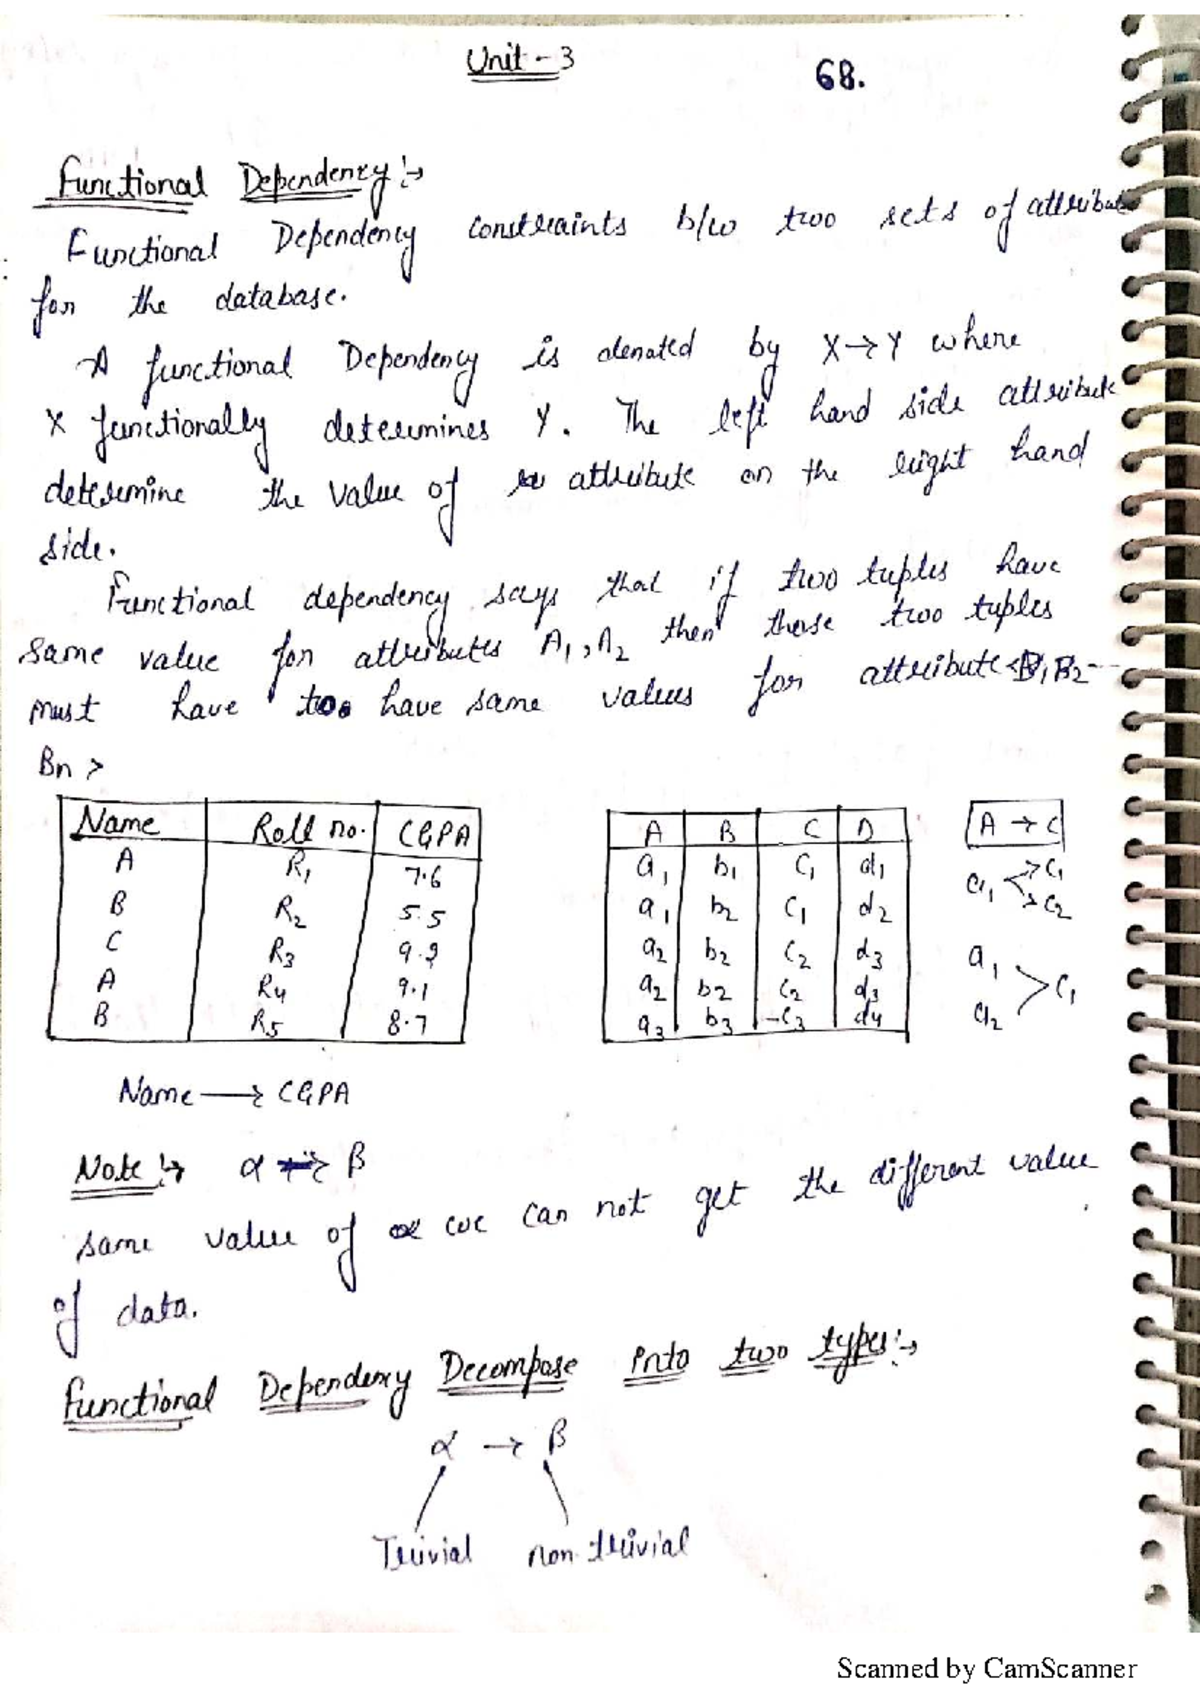 Unit - 3
68.
Functional Dependency :→
Functional Dependency constraints b/w two sets of attribut
for the database.
A functional Dependency is denated by X→Y where
X functionally determines Y. The left hand side attribute
determine the value of attribute on the right hand
side.
Functional dependency says that if two tuples have
same value for attributes A1, A2 then those two tuples
must have to have same values for attribute <B1, B2 --
Bn >
Name Roll no. CGPA
A R1 7.6
B R2 5.5
C R3 9.2
A R4 9.1
B R5 8.7
A B C D
a1 b1 C1 d1
a1 b2 C1 d2
a2 b2 C2 d3
a2 b2 C2 d3
a3 b3 -C3 d4
A → C
a1 → C1
→ C2
a1
> C1
a2
Name → CGPA
Note :→ α → β
same value of α we can not get the different value
of data.
Functional Dependency Decompose into two types :→
α → β
Trivial non-trivial
Scanned by CamScanner